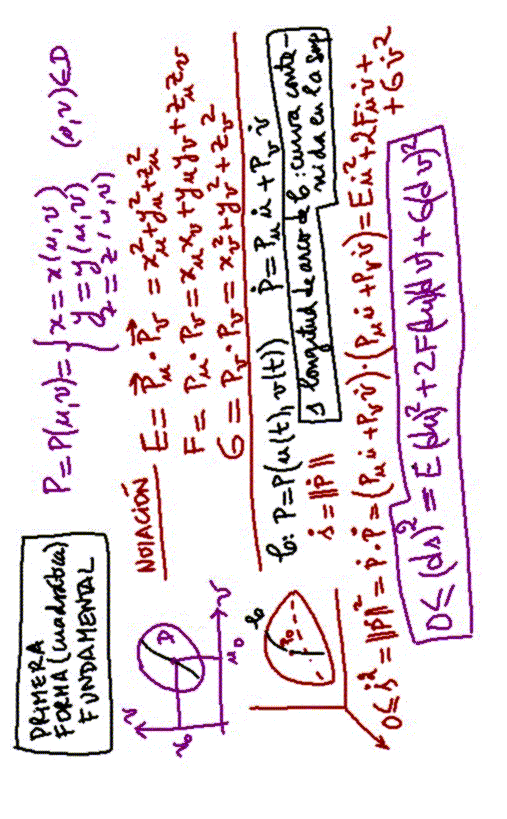 PRIMERA
FORMA (cuadrática)
FUNDAMENTAL
P = P(u,v) = { x = x(u,v)
y = y(u,v)
z = z(u,v)
(u,v) ∈ D
v
v₀
D
u₀
v
NOTACIÓN
E = P⃗ᵤ · P⃗ᵤ = xᵤ² + yᵤ² + zᵤ²
F = Pᵤ · Pᵥ = xᵤxᵥ + yᵤyᵥ + zᵤzᵥ
G = Pᵥ · Pᵥ = xᵥ² + yᵥ² + zᵥ²
P₀
C
C: P = P(u(t), v(t)) Ṗ = Pᵤ u̇ + Pᵥ v̇
ṡ = ||Ṗ||
s longitud de arco de C: curva conte-
nida en la sup
0 ≤ ṡ² = ||Ṗ||² = Ṗ · Ṗ = (Pᵤ u̇ + Pᵥ v̇) · (Pᵤ u̇ + Pᵥ v̇) = E u̇² + 2F u̇ v̇ +
+ G v̇²
0 ≤ (ds)² = E (du)² + 2F(du)(dv) + G(dv)²